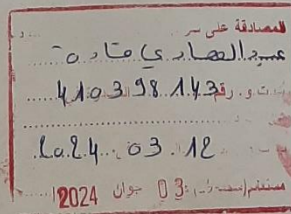 المصادقة على
عبد الهادي قادة
ت.و. رقم 410398143
2024.03.12
مستغانم في: 03 جوان 2024